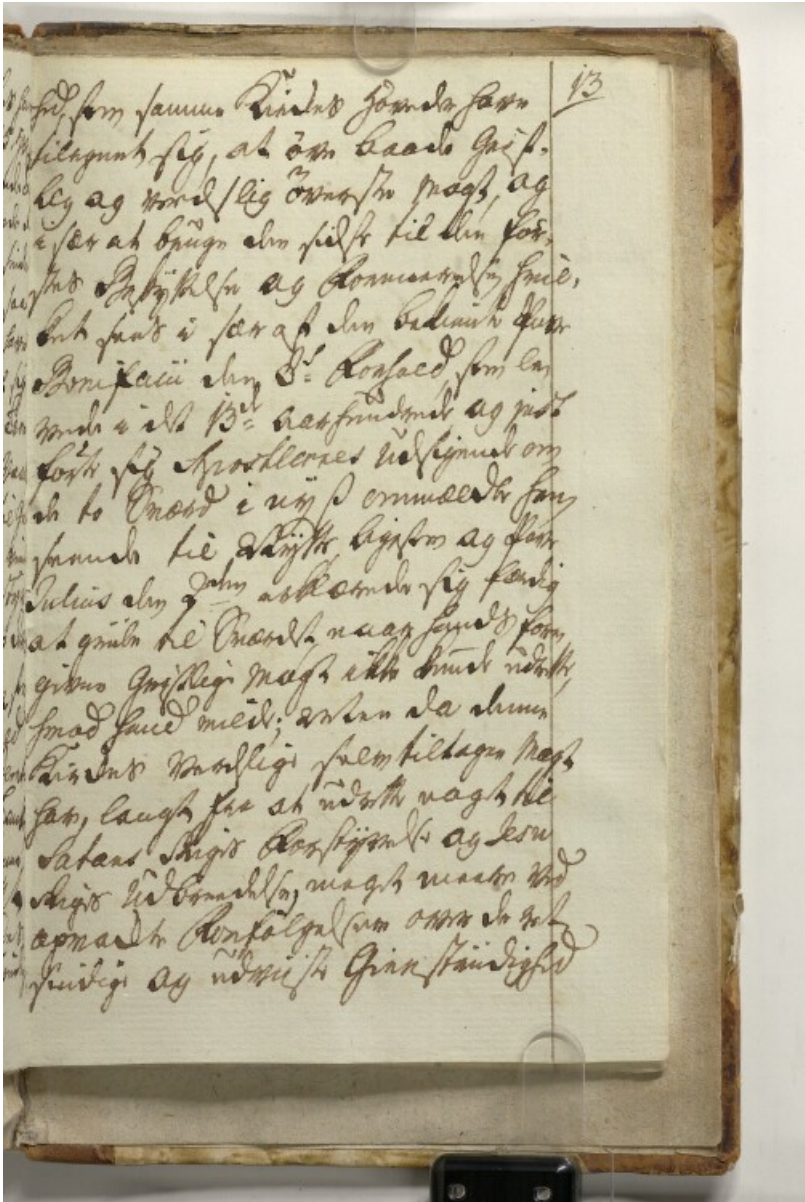 13
hed, som samme Kirkes Hoveder have
tilegnet sig, at öve baade Geist-
lig og verdslig överste Magt, og
i sær at bruge den sidste til denför-
stes Beskyttelse og Formeerelse, hvil-
ket sees i sær af den bekiente Pave
Bonifacii den 8de Forhold, som le-
vede i det 13de Aarhundrede og just
förte sig Apostlernes Udsigende om
de to Sværd i nyß ommældte Hen-
seende til Nytte, ligesom og Pave
Julius den 2den erklærede sig færdig
at gribe til Sværdet, naar hands fore-
givne Geistlige Magt ikke kunde udrette,
hvad hand vilde; da denne
Kirkes Verdslige selvtiltagne Magt
har, langt fra at udrette noget til
Satans Riges Forstyrrelse og Jesu
Riges Udbreedelse, meget meere ved
Forfölgelser over de ret-
sindige og udviiste Gienstridighed